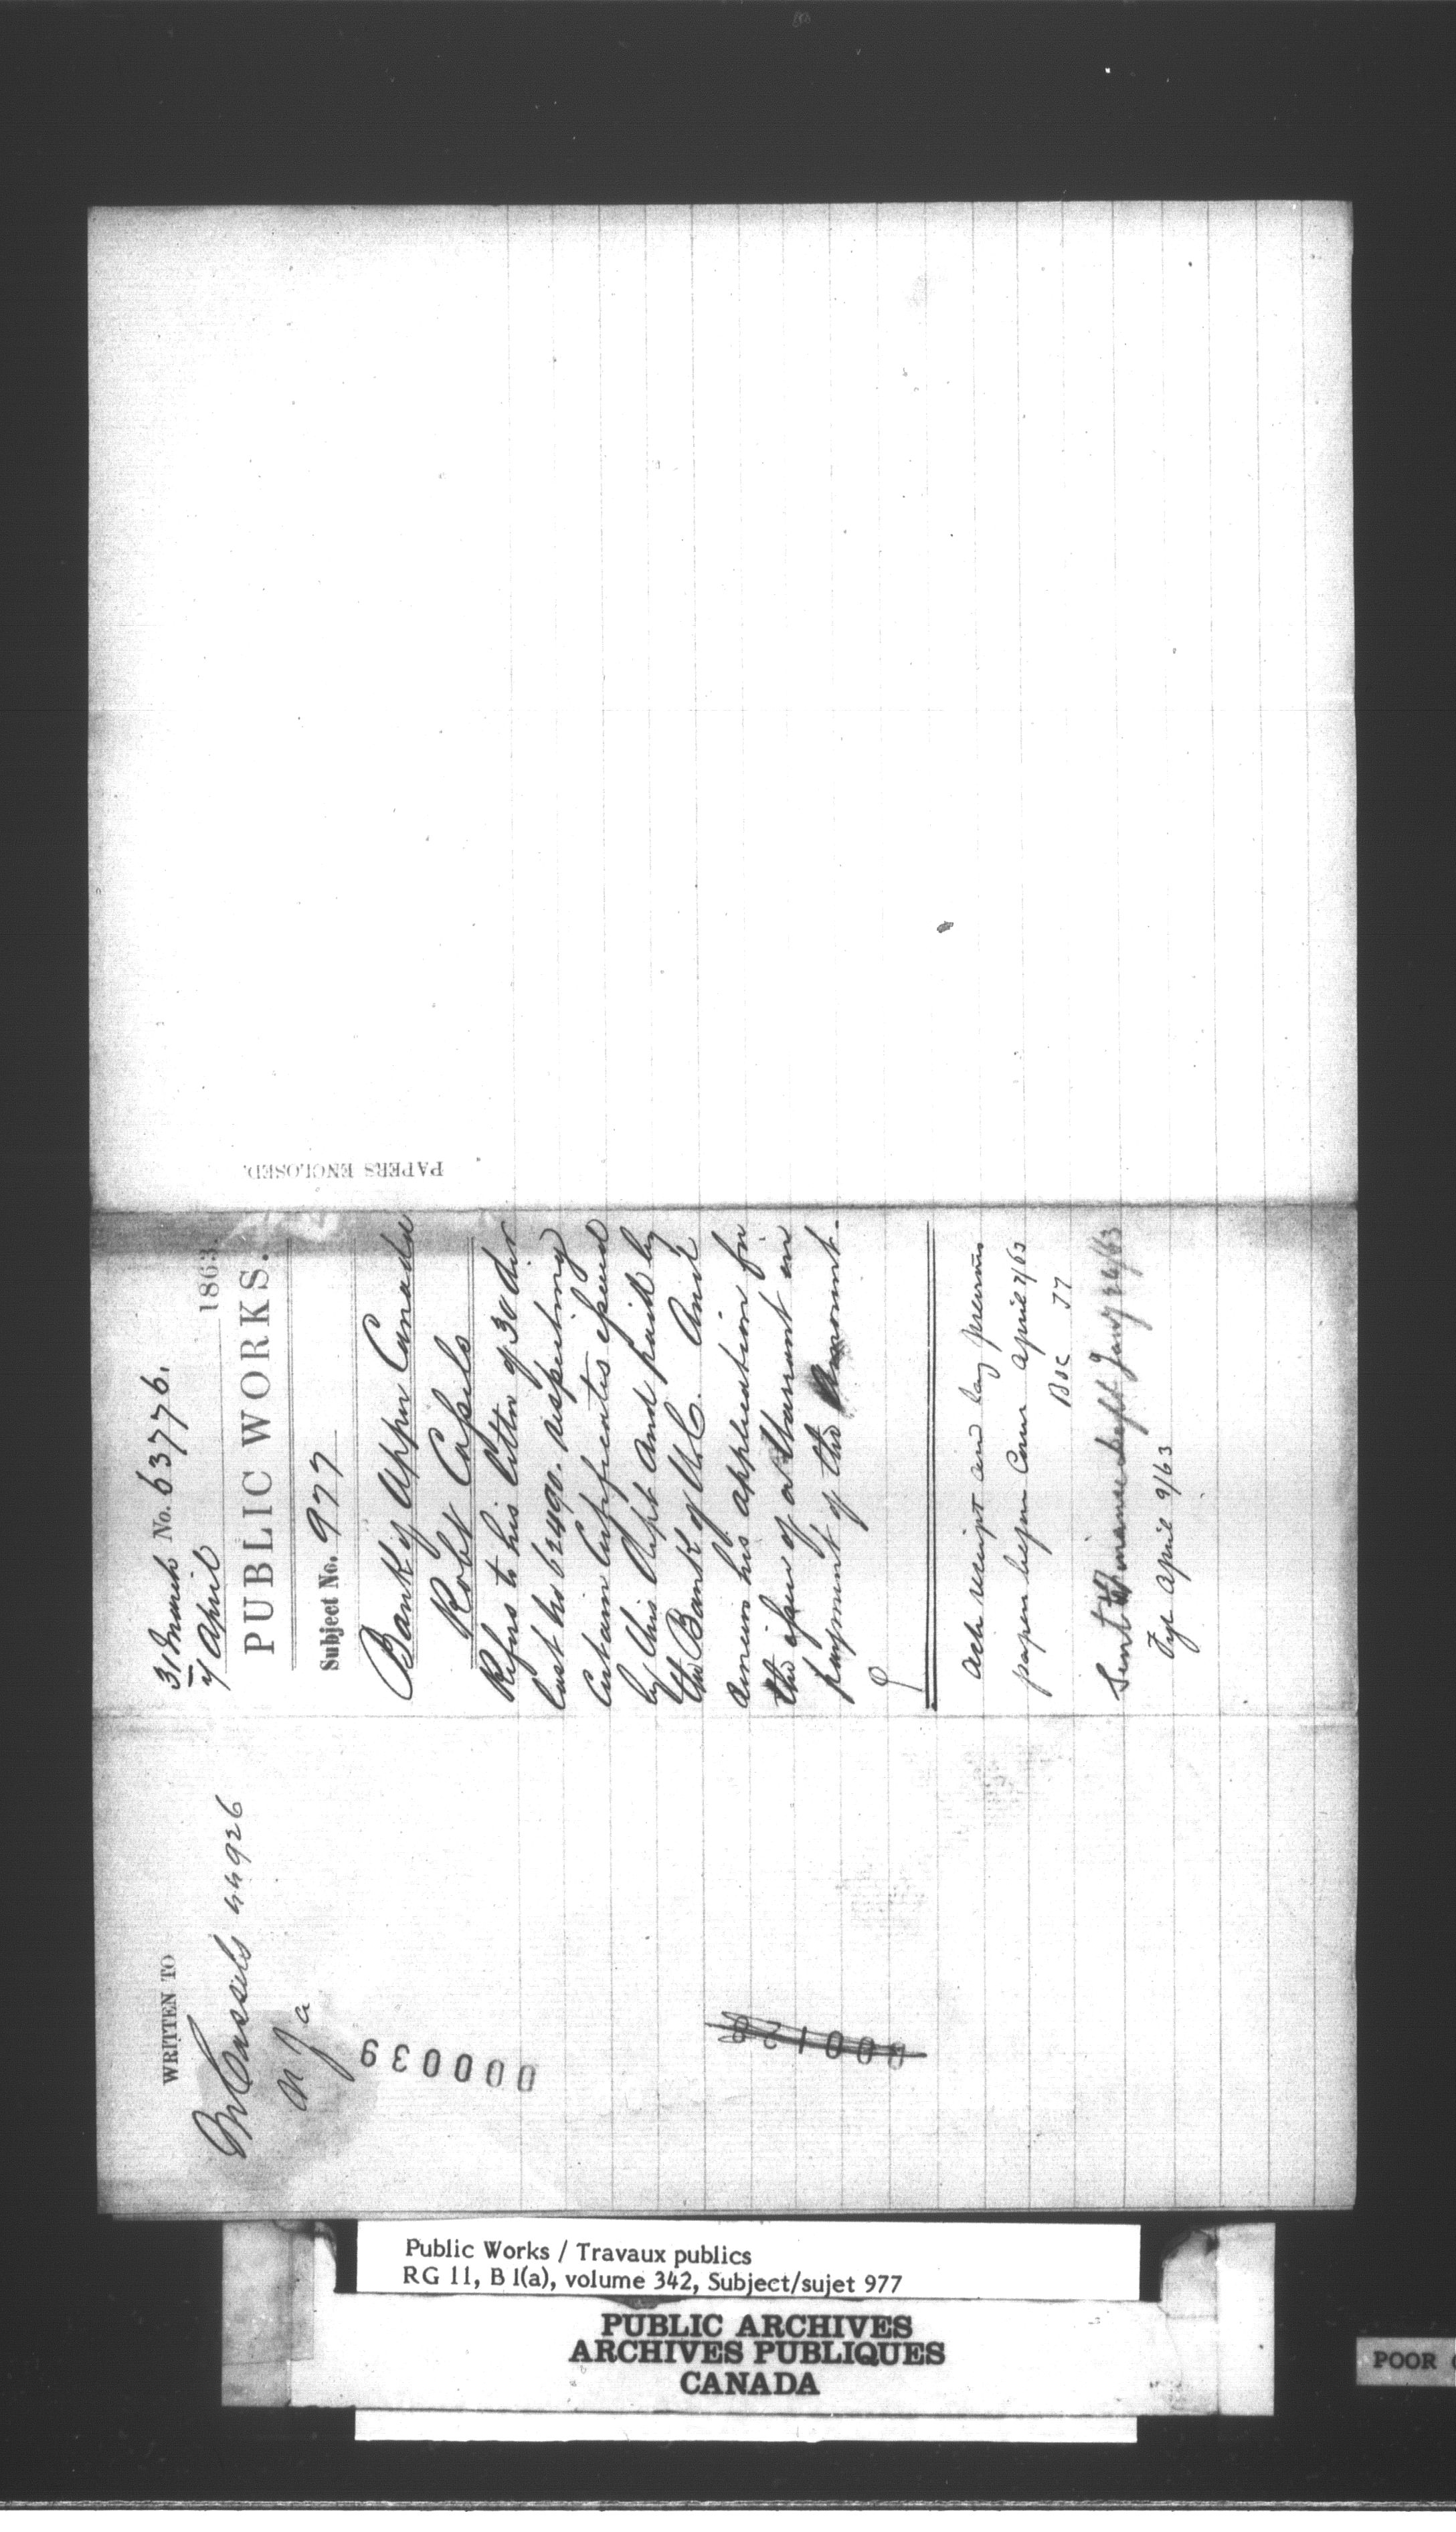 WRITTEN TO
Mr Cassels 44926
000039
000122
31 March No. 63776.
4 April 1863.
PUBLIC WORKS.
Subject No. 977
Bank of Upper Canada
Robt Cassels
Refers to his letter of 30 Decr
last his 62490. respecting
Certain Certificates issued
by this Dept and paid by
the Bank of U.C. And
renews his application for
the issue of a Warrant in
payment of the Amount.
Ack receipt and lay previous
papers before Comr April 7/63
JT
Sent to Finance Dept
April 9/63
PAPERS ENCLOSED.
Public Works / Travaux publics
RG 11, B 1(a), volume 342, Subject/sujet 977
PUBLIC ARCHIVES
ARCHIVES PUBLIQUES
CANADA
POOR